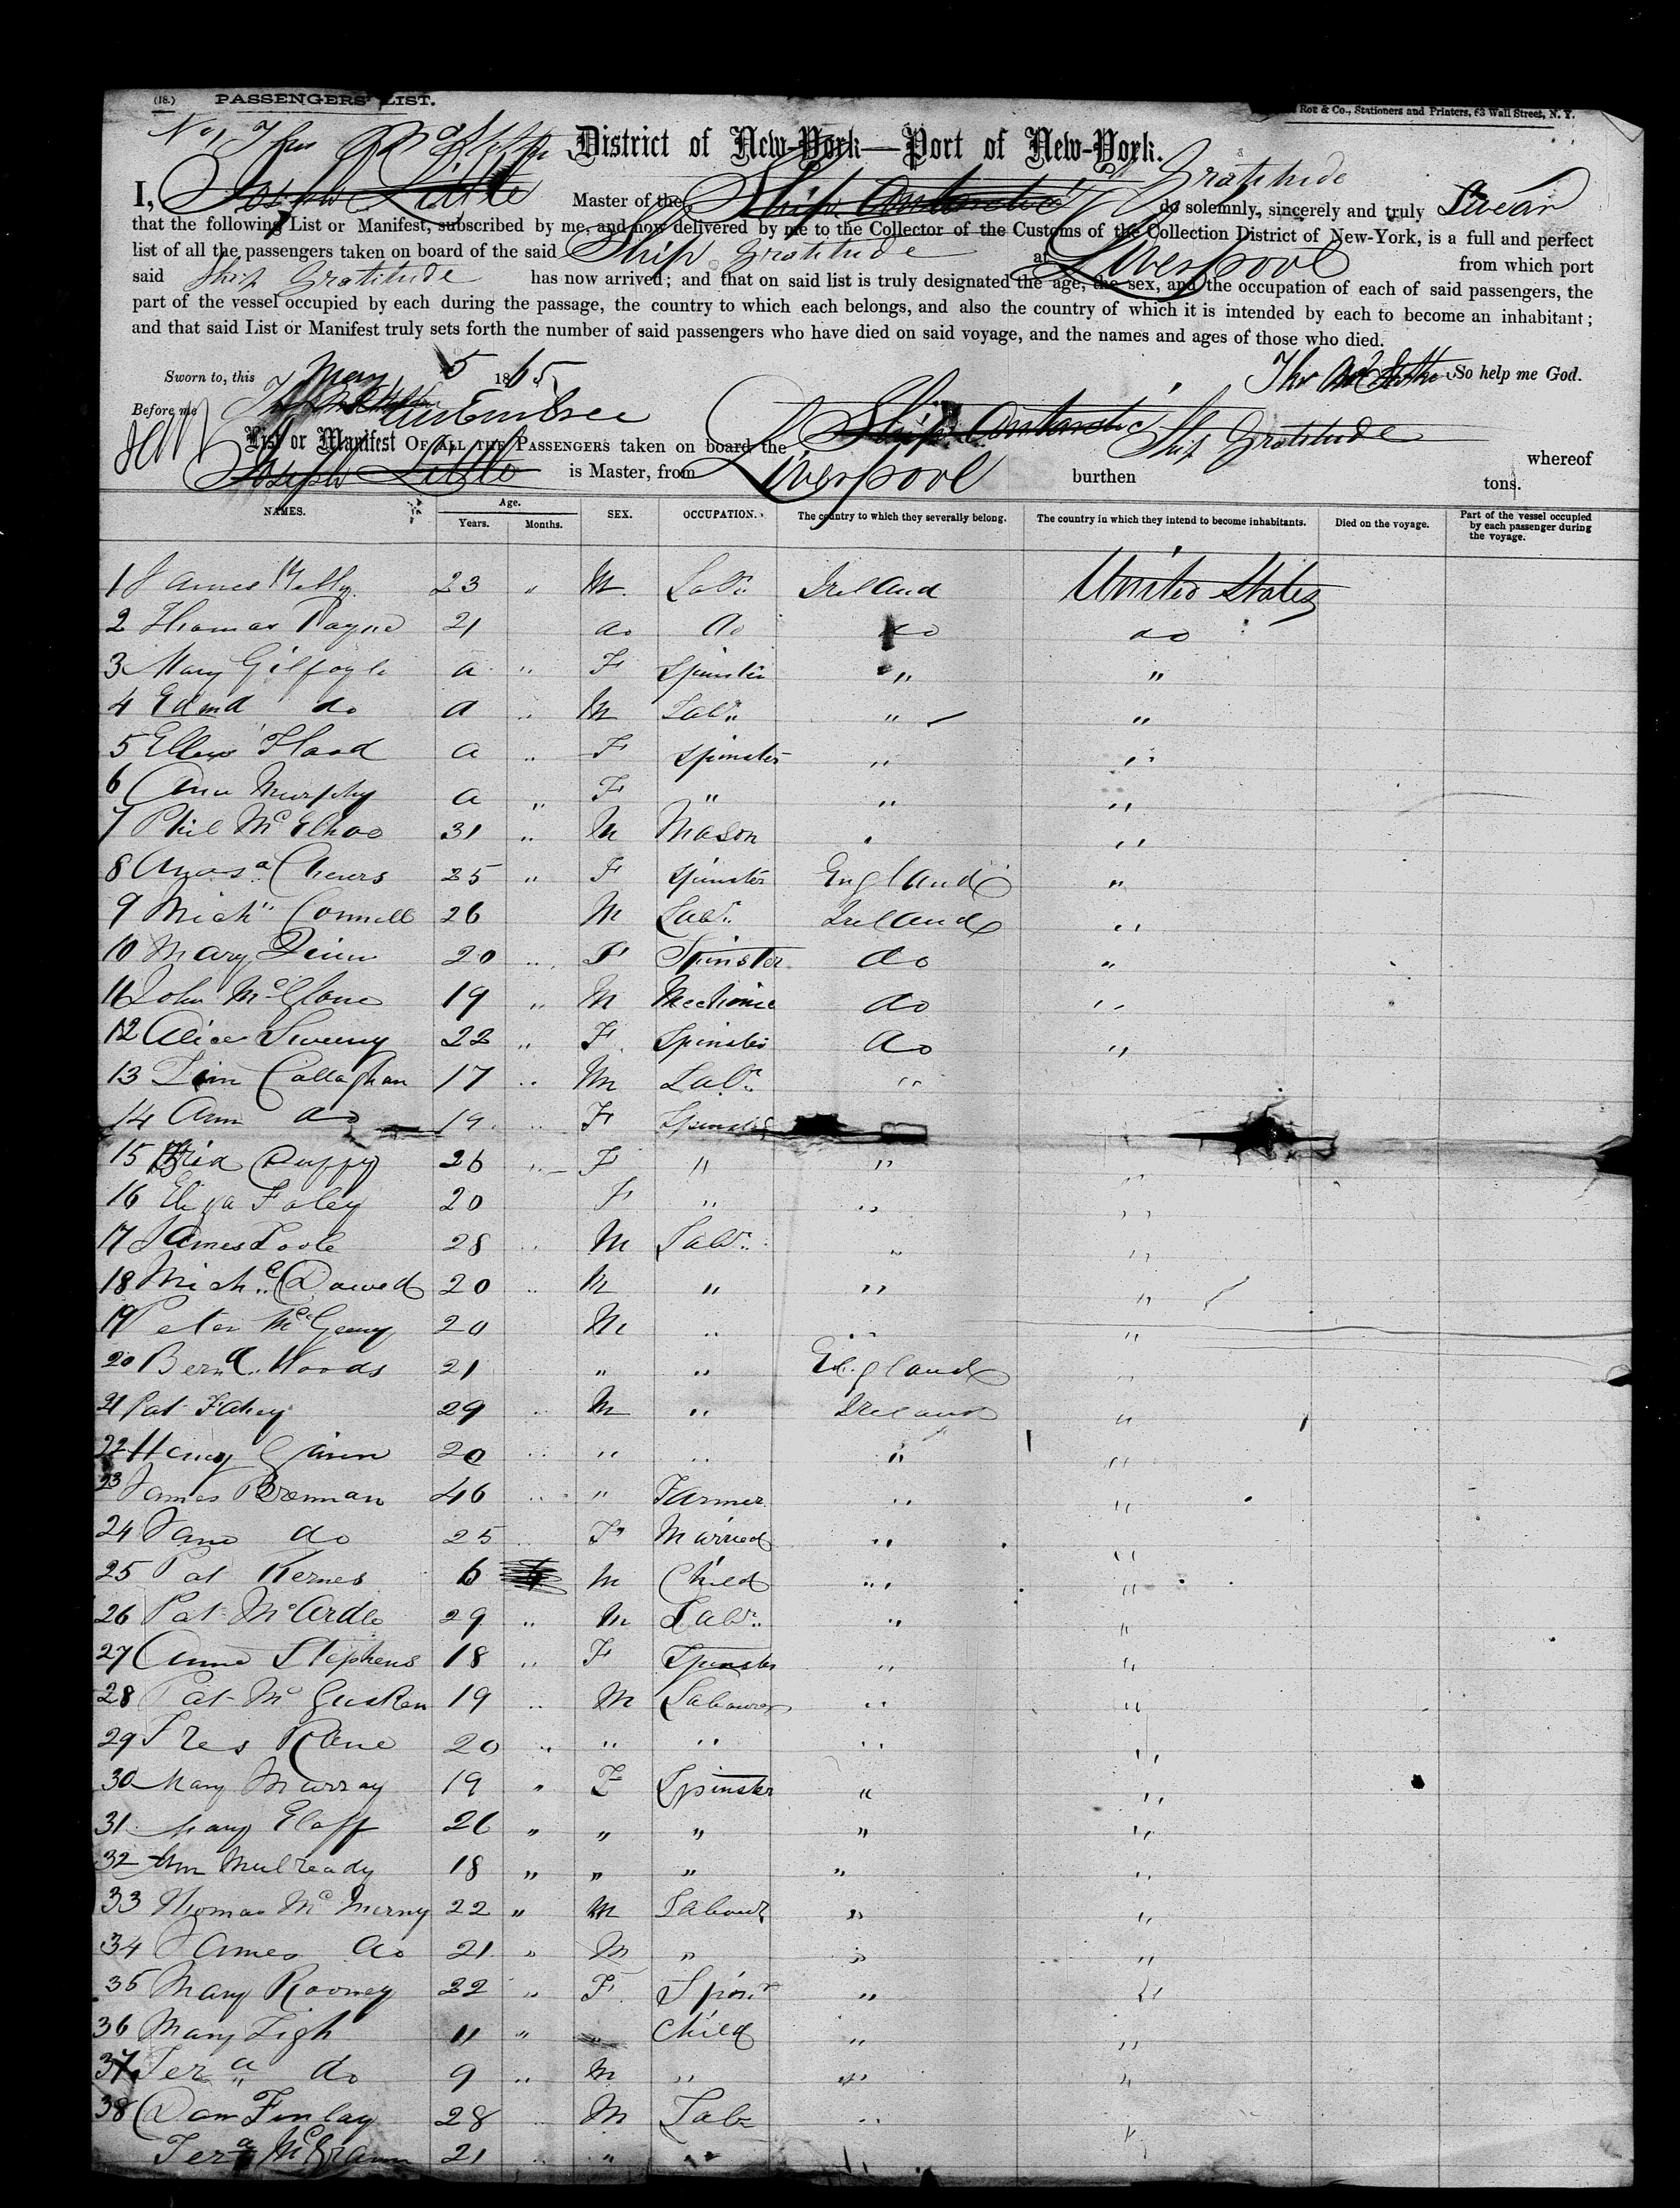 (18.) PASSENGERS' LIST.
Roe & Co., Stationers and Printers, 63 Wall Street, N. Y.
No 1, Thos
District of New-York—Port of New-York.
Gratitude
I, Joseph Little Master of the Ship Antarctic do solemnly, sincerely and truly Swear
that the following List or Manifest, subscribed by me, and now delivered by me to the Collector of the Customs of the Collection District of New-York, is a full and perfect
list of all the passengers taken on board of the said Ship Gratitude at Liverpool from which port
said Ship Gratitude has now arrived; and that on said list is truly designated the age, the sex, and the occupation of each of said passengers, the
part of the vessel occupied by each during the passage, the country to which each belongs, and also the country of which it is intended by each to become an inhabitant;
and that said List or Manifest truly sets forth the number of said passengers who have died on said voyage, and the names and ages of those who died.
Sworn to, this May 5 1865 Thos So help me God.
Before me
List or Manifest OF ALL THE PASSENGERS taken on board the Ship Antarctic Ship Gratitude whereof
Joseph Little is Master, from Liverpool burthen tons.
NAMES. Age. Years. Months. SEX. OCCUPATION. The country to which they severally belong. The country in which they intend to become inhabitants. Died on the voyage. Part of the vessel occupied by each passenger during the voyage.
1 James 23 " M Labr. Ireland United States
2 Thomas Payne 21 do do do do
3 Mary Gilfoyle a " F Spinster " "
4 Edmd do a " M Labr. " "
5 Ellen Flood a " F Spinster " "
6 Ann Murphy a " F " " "
7 Phil 31 " M Mason " "
8 25 " F Spinster England "
9 Michl Connell 26 M Labr. Ireland "
10 Mary Quinn 20 " F Spinster do "
11 John McGlone 19 " M Mechanic do "
12 Alice Sweeny 22 " F Spinster do "
13 Tim Callaghan 17 " M Labr. " "
14 Ann do 19 " F Spinster
15 Duffy 26 " F " " "
16 Eliza Foley 20 F " " "
17 James Toole 28 " M Labr. " "
18 Michl. Dowed 20 " M " " "
19 Peter 20 M " " "
20 Bernd. Woods 21 " " England "
21 Pat Fahey 29 " M " Ireland "
22 Henry 20 " " " " "
23 James Brennan 46 " " Farmer " "
24 Jane do 25 " F Married " "
25 Pat Kernes 6 M Child " "
26 Pat McArdle 29 " M Labr. " "
27 Anne Stephens 18 " F Spinster " "
28 Pat McGusken 19 " M Labourer " "
29 Kane 20 " " " " "
30 Mary Murray 19 " F Spinster " "
31 Mary 26 " " " " "
32 Mulready 18 " " " " "
33 Thomas 22 " M Labour " "
34 James do 21 " M " " "
35 Mary Rooney 22 " F Spinr " "
36 Mary Tigh 11 " " Child " "
37 Tera do 9 " M " " "
38 Dom Finlay 28 " M Labr " "
Tera 21 " " " "